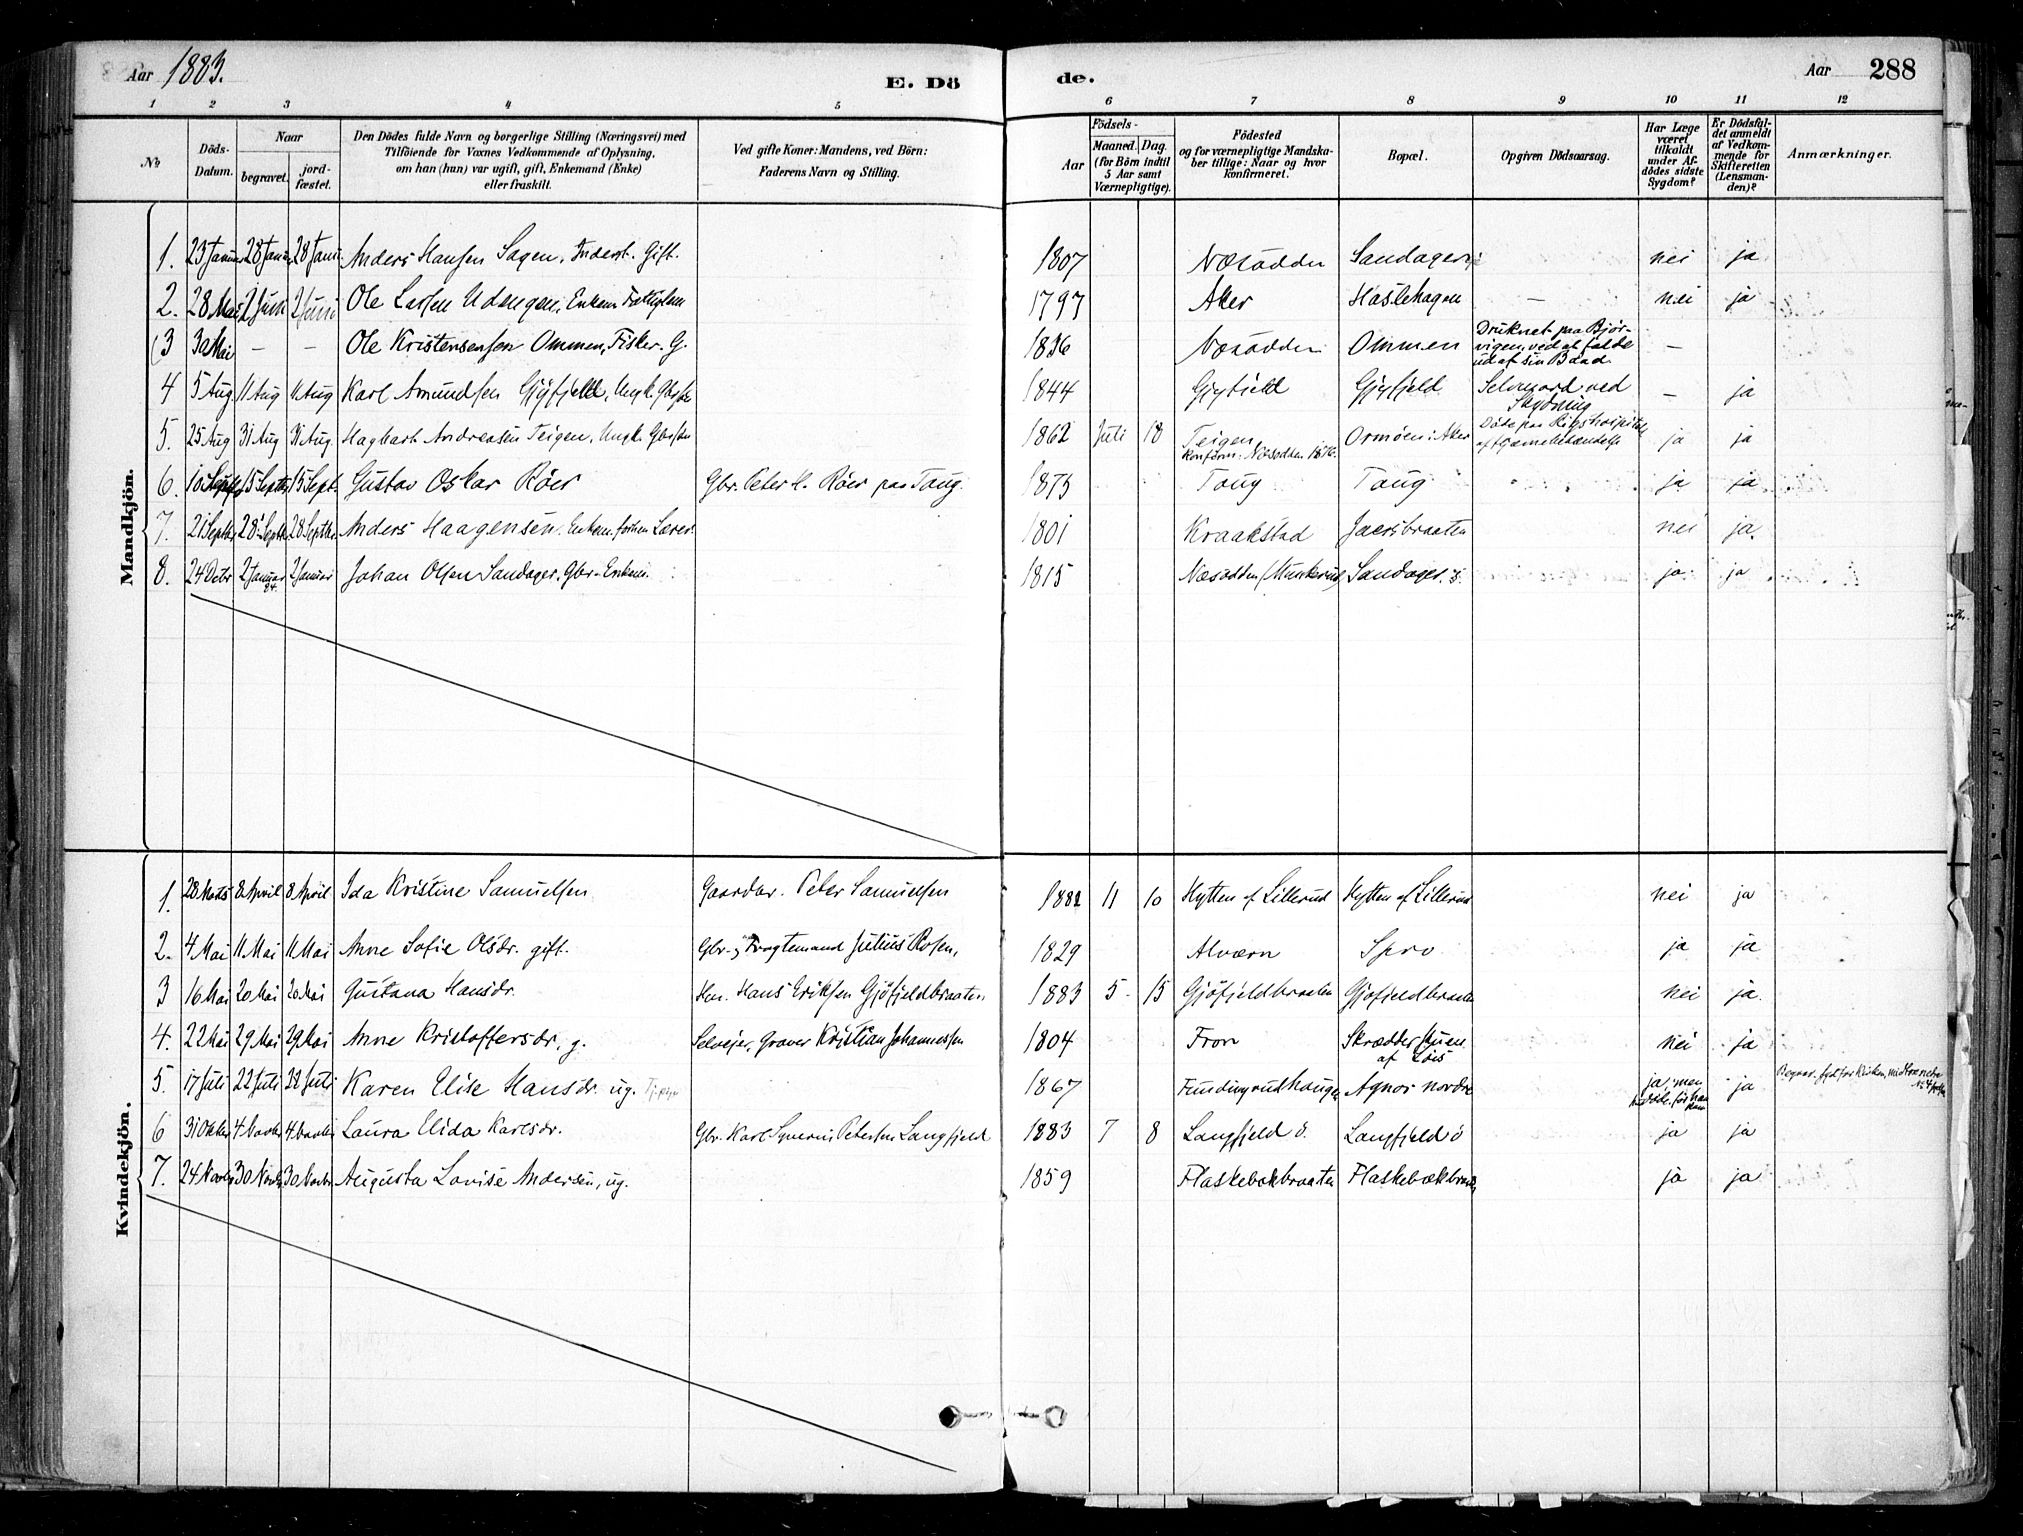 Aar 1883.
E. Dö
de.
Aar 288
1 2 3 4 5 6 7 8 9 10 11 12
No
Döds-Datum.
Naar
begravet.
jord-fæstet.
Den Dödes fulde Navn og borgerlige Stilling (Næringsvei) med
Tilföiende for Voxnes Vedkommende af Oplysning,
om han (hun) var ugift, gift, Enkemand (Enke)
eller fraskilt.
Ved gifte Koner: Mandens, ved Börn:
Faderens Navn og Stilling.
Födsels-
Aar
Maaned. Dag.
(for Börn indtil
5 Aar samt
Værnepligtige).
Födested
og for værnepligtige Mandska-
ber tillige: Naar og hvor
konfirmeret.
Bopæl.
Opgiven Dödsaarsag.
Har Læge
været
tilkaldt
under Af-
dödes sidste
Sygdom?
Er Dödsfal-
det anmeldt
af Vedkom-
mende for
Skifteretten
(Lensman-
den)?
Anmærkninger.
Mandkjön.
1. 23 Januar 28 Januar 28 Januar Anders Hansen Sagen, Inderst. Gift. 1807 Næsodden nei ja
2. 28 Mai 2 Juni 2 Juni Ole Larsen Udengen, Enkem Fattiglem 1797 Aker Haslehagen — nei ja
3 30 Mai — — Ole Kristensen Ommen, Fisker. G. 1836 Næsodden Ommen Druknet paa Bjør-
vigen, ved at falde
ud af sin Baad —
4 5 Aug. 11 Aug 11 Aug Karl Amundsen Gjøfjeld, Ungk. 1844 Gjøfjeld Gjøfjeld Selvmord ved
Skydning — ja
5. 25 Aug 31 Aug 31 Aug. Hagbart Andreasen Teigen, Ungk. 1862 Juli 18 Teigen
Konfirm: Næsodden Ormöen i Aker Döde paa Rigshospitalet ja ja
6. 10 Septbr 15 Septbr 15 Sept. Gustav Oskar Röer Gbr. Peter H. Röer paa Toug. 1875 Toug Toug ja ja
7. 21 Septbr 28 Septbr 28 Septbr. Anders Haagensen. Enkem. forhen Lærer. 1801 Kraakstad Jaersbraaten nei ja.
8. 24 Decbr 2 Januar 2 Januar Johan Olsen Sandager, Gbr. Enkem. 1815 Næsodden (Munkerud) Sandager. ja ja
Kvindekjön.
1. 28 Marts 8 April 8 April Ida Kristine Samuelsen Gaardbr. Peter Samuelsen 1882 11 10 Hytten af Lillerud Hytten af Lillerud nei ja
2. 4 Mai 11 Mai 11 Mai Anne Sofie Olsdr. gift. Gbr. Fragtemand Julius 1829 Alværn Spro ja ja
3 16 Mai 20 Mai 20 Mai Gustava Hansdr. Hm. Hans Eriksen Gjöfjeldbraaten 1883 5 15 Gjöfjeldbraaten Gjöfjeldbraaten nei ja
4. 22 Mai 29 Mai 29 Mai Anne Kristoffersdr, g. Selveier, Graver Kristian Johannessen 1804 Fron Skrædderstuen
af nei ja
5. 17 Juli 22 Juli 22 Juli Karen Elise Hansdr. ug. 1867 Agnor nordre ja, men ja
6 31 Oktbr 4 Novbr 4 Novbr Laura Elida Karlsdr. Gbr. Karl Severin Petersen Langfjeld 1883 7 8 Langfjeld ö. Langfjeld ö ja ja
7. 24 Novbr 30 Novbr 30 Novbr Augusta Lovise Andersen, ug. 1859 Flaskebekbraaten Flaskebækbraaten ja ja